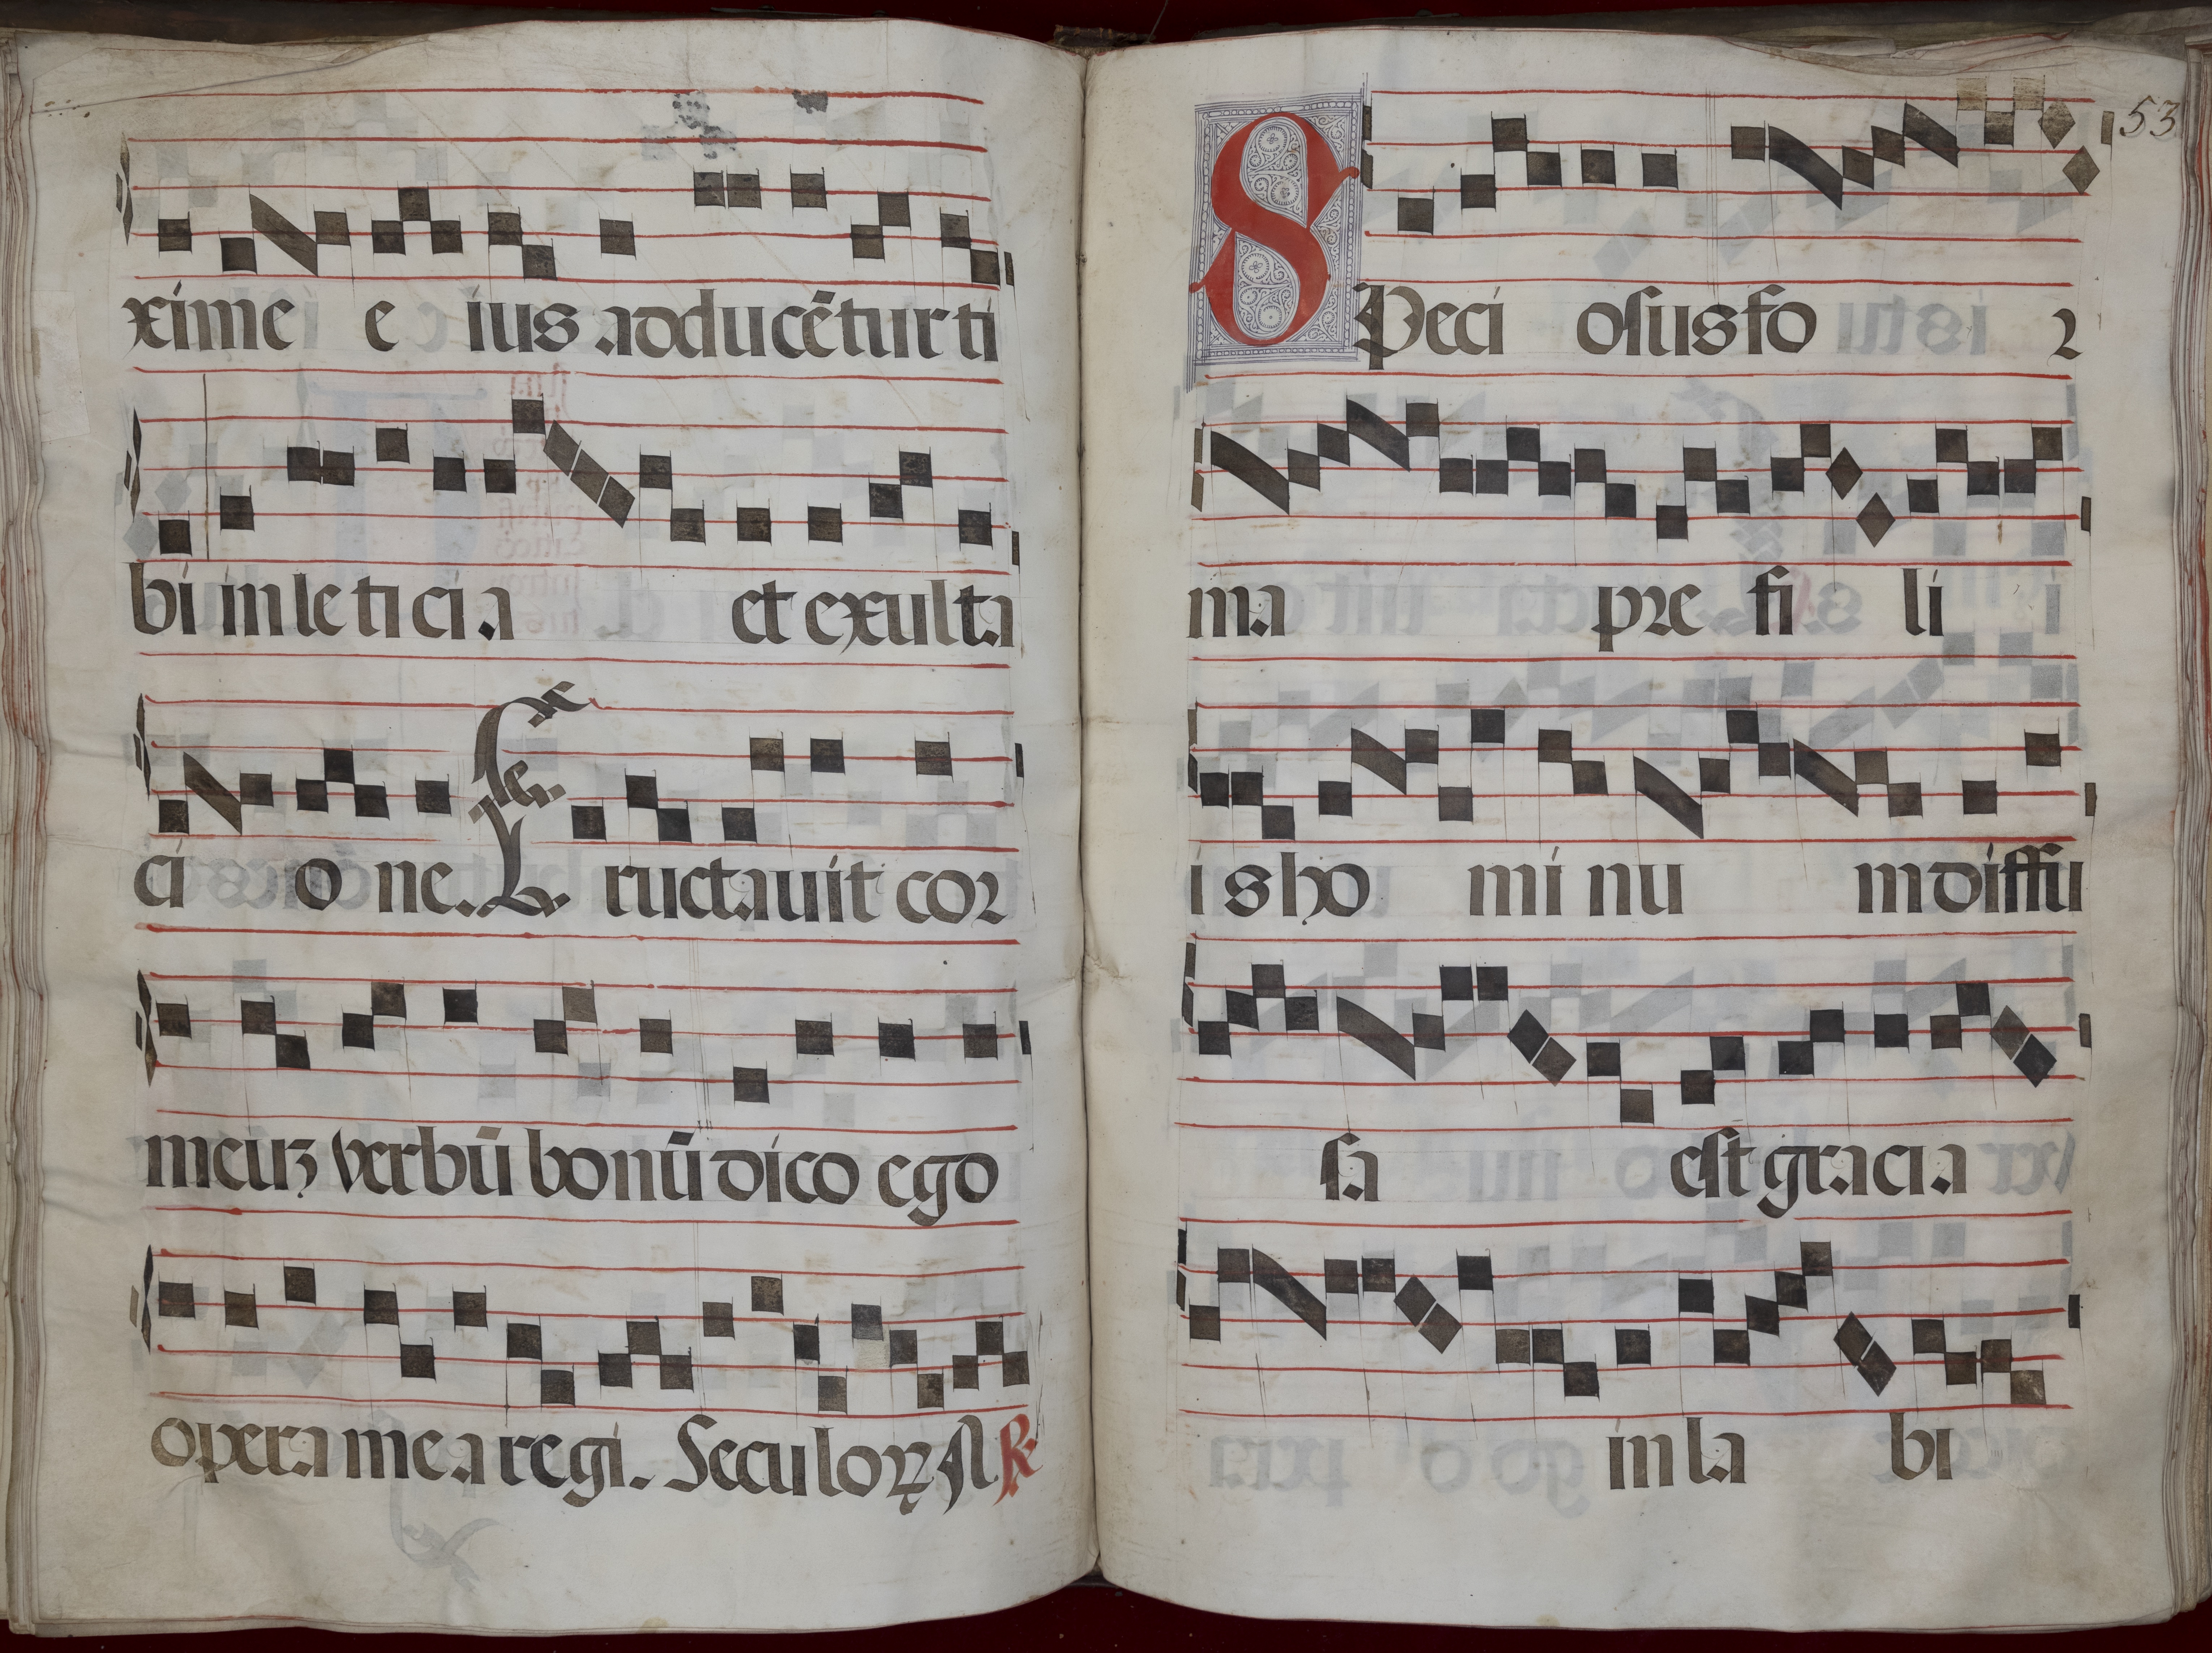 xime e ius adducẽtur ti
bi in le ti ci a et exulta
ci o ne. Eructauit cor
meuꝫ verbũ bonũ dico ego
opera mea regi. Seculoꝝ A ℟
53
SPeci osus fo ꝛ
ma pꝛe fi li i
is ho mi nu m diffu
sa est gracia
in la bi